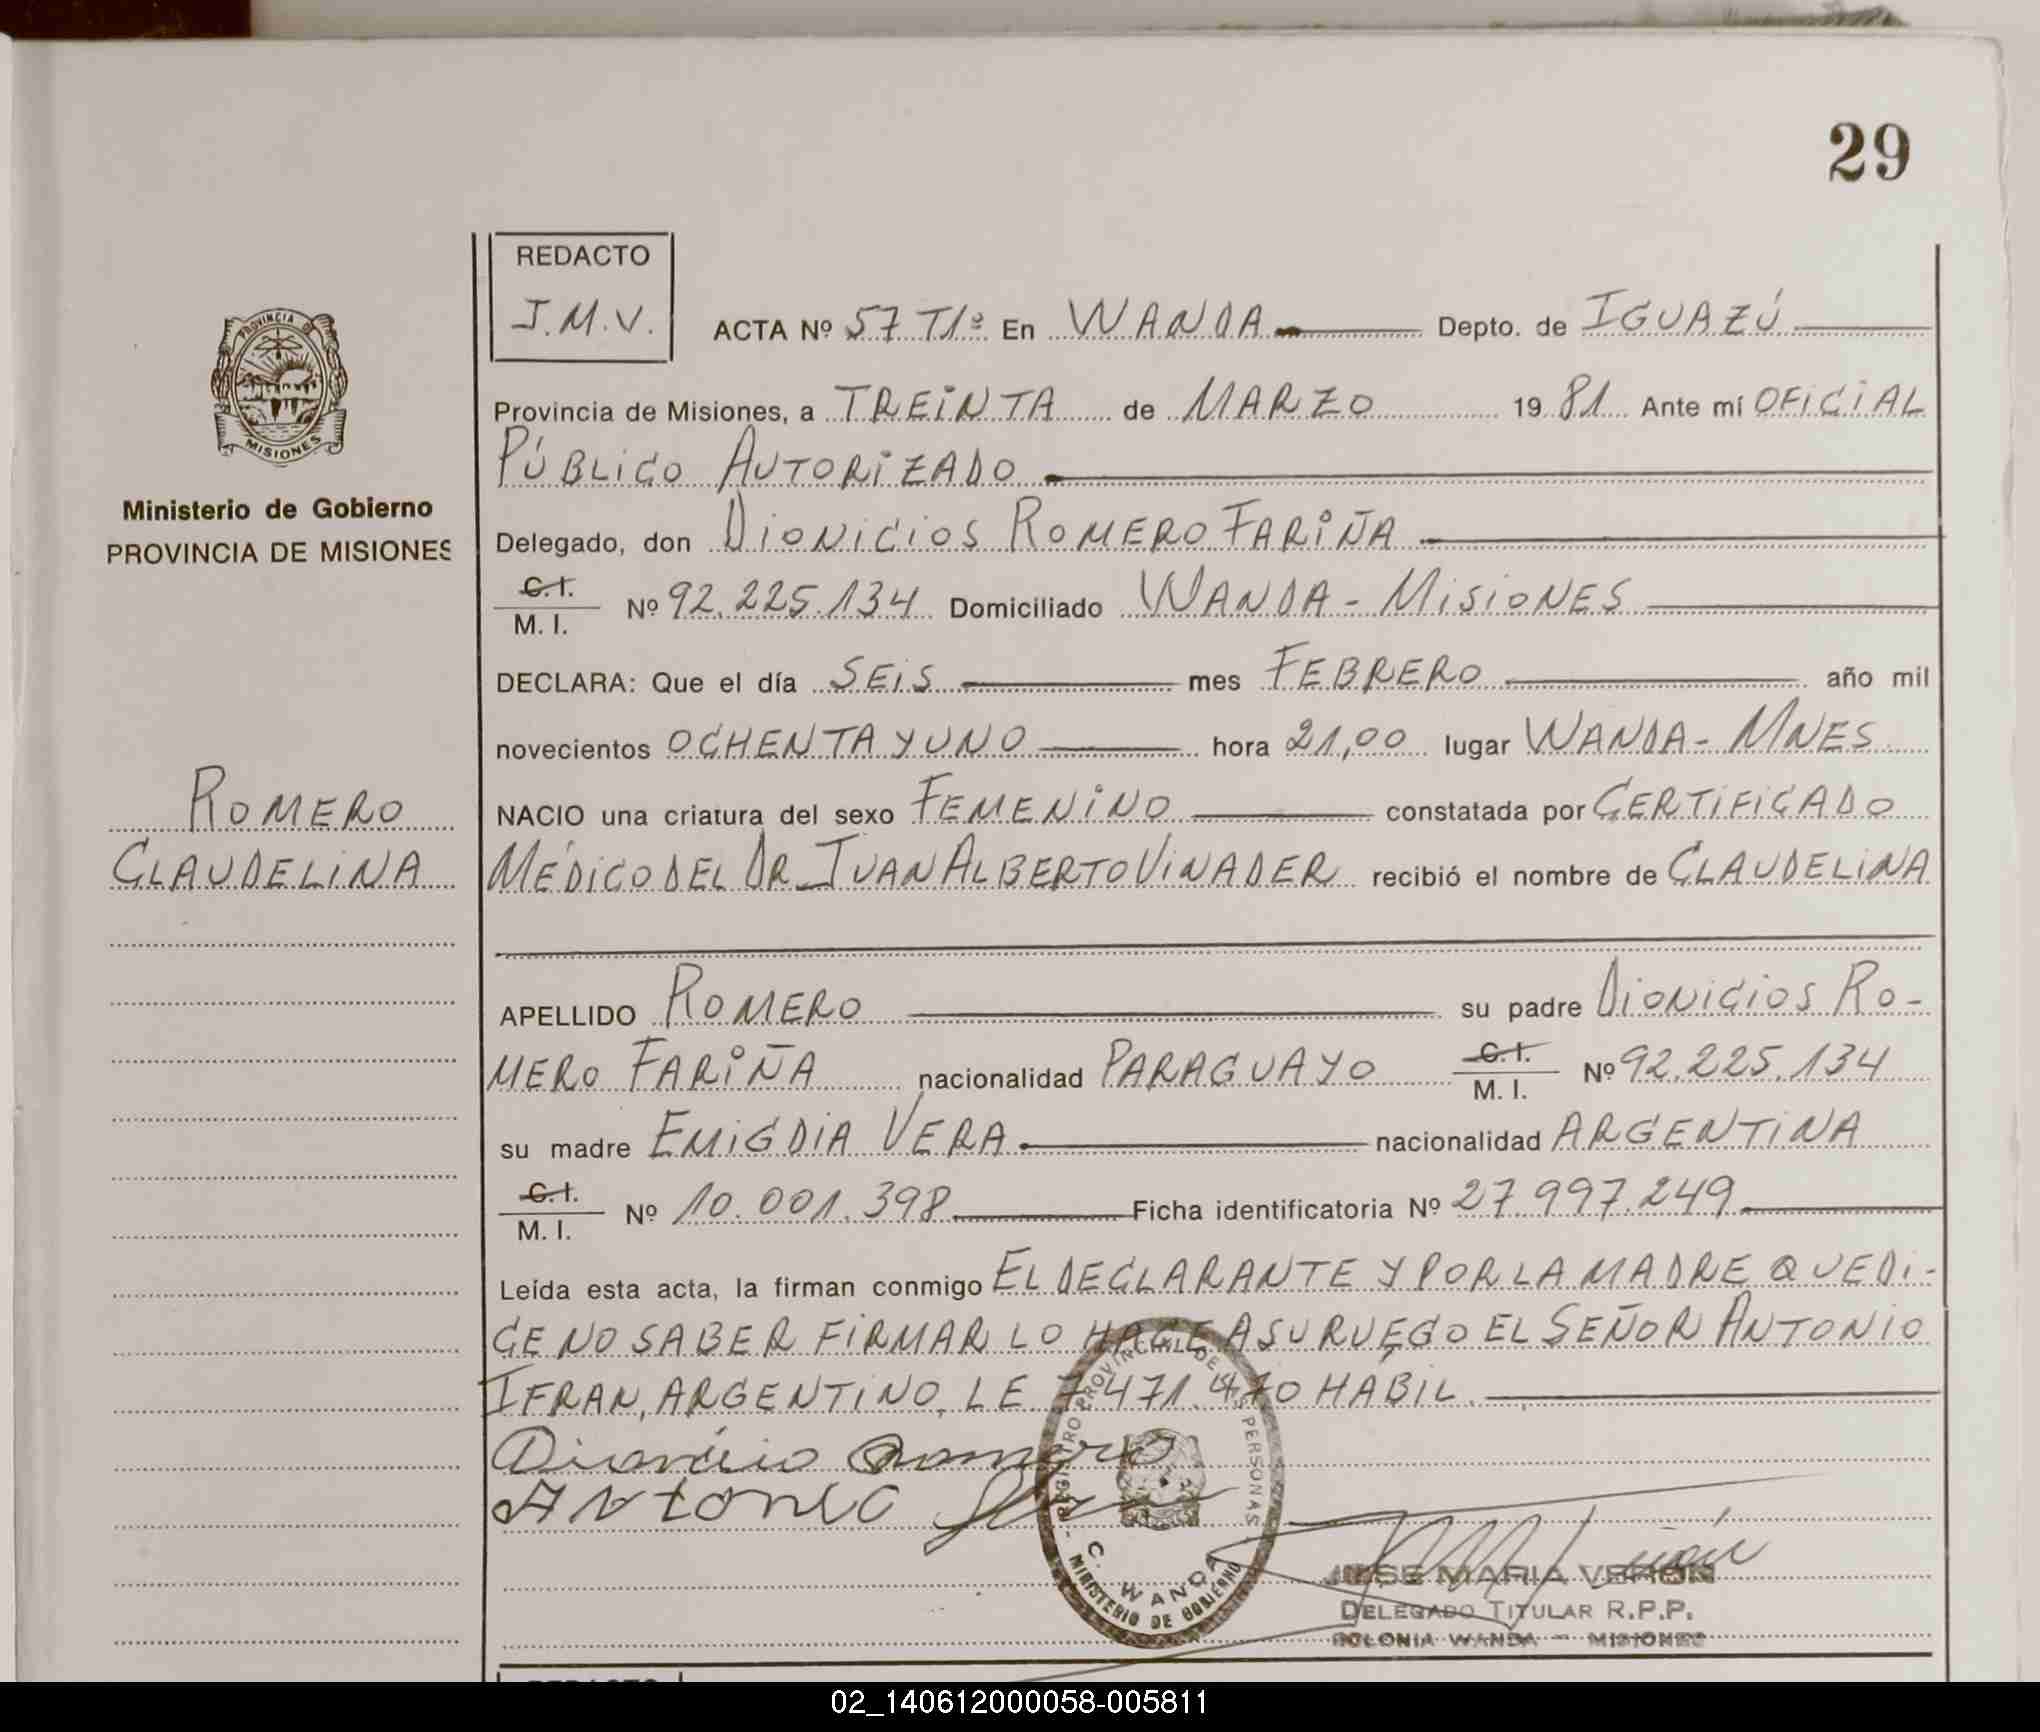 29
REDACTO
J.M.V.
ACTA Nº 57 T1º En WANDA Depto. de IGUAZÚ
Provincia de Misiones, a TREINTA de MARZO 1981 Ante mí OFICIAL
PÚBLICO AUTORIZADO
Delegado, don DIONICIOS ROMERO FARIÑA
C.I.
M.I. Nº 92.225.134 Domiciliado WANDA - MISIONES
DECLARA: Que el día SEIS mes FEBRERO año mil
novecientos OCHENTA Y UNO hora 21,00 lugar WANDA - MNES
NACIO una criatura del sexo FEMENINO constatada por CERTIFICADO
MÉDICO DEL DR JUAN ALBERTO VINADER recibió el nombre de CLAUDELINA
APELLIDO ROMERO su padre DIONICIOS RO-
MERO FARIÑA nacionalidad PARAGUAYO C.I. M.I. Nº 92.225.134
su madre EMIGDIA VERA nacionalidad ARGENTINA
C.I.
M.I. Nº 10.001.398 Ficha identificatoria Nº 27.997.249
Leída esta acta, la firman conmigo EL DECLARANTE Y POR LA MADRE QUE DI-
CE NO SABER FIRMAR LO HACE A SU RUEGO EL SEÑOR ANTONIO
IFRAN, ARGENTINO, LE 7.471.470 HÁBIL.
Dionicio Romero
Antonio
REGISTRO PROVINCIAL DE LAS PERSONAS
C. WANDA
MINISTERIO DE GOBIERNO
JOSE MARIA VERÓN
DELEGADO TITULAR R.P.P.
COLONIA WANDA - MISIONES
PROVINCIA DE
MISIONES
Ministerio de Gobierno
PROVINCIA DE MISIONES
ROMERO
CLAUDELINA
REDACTO
02_140612000058-005811